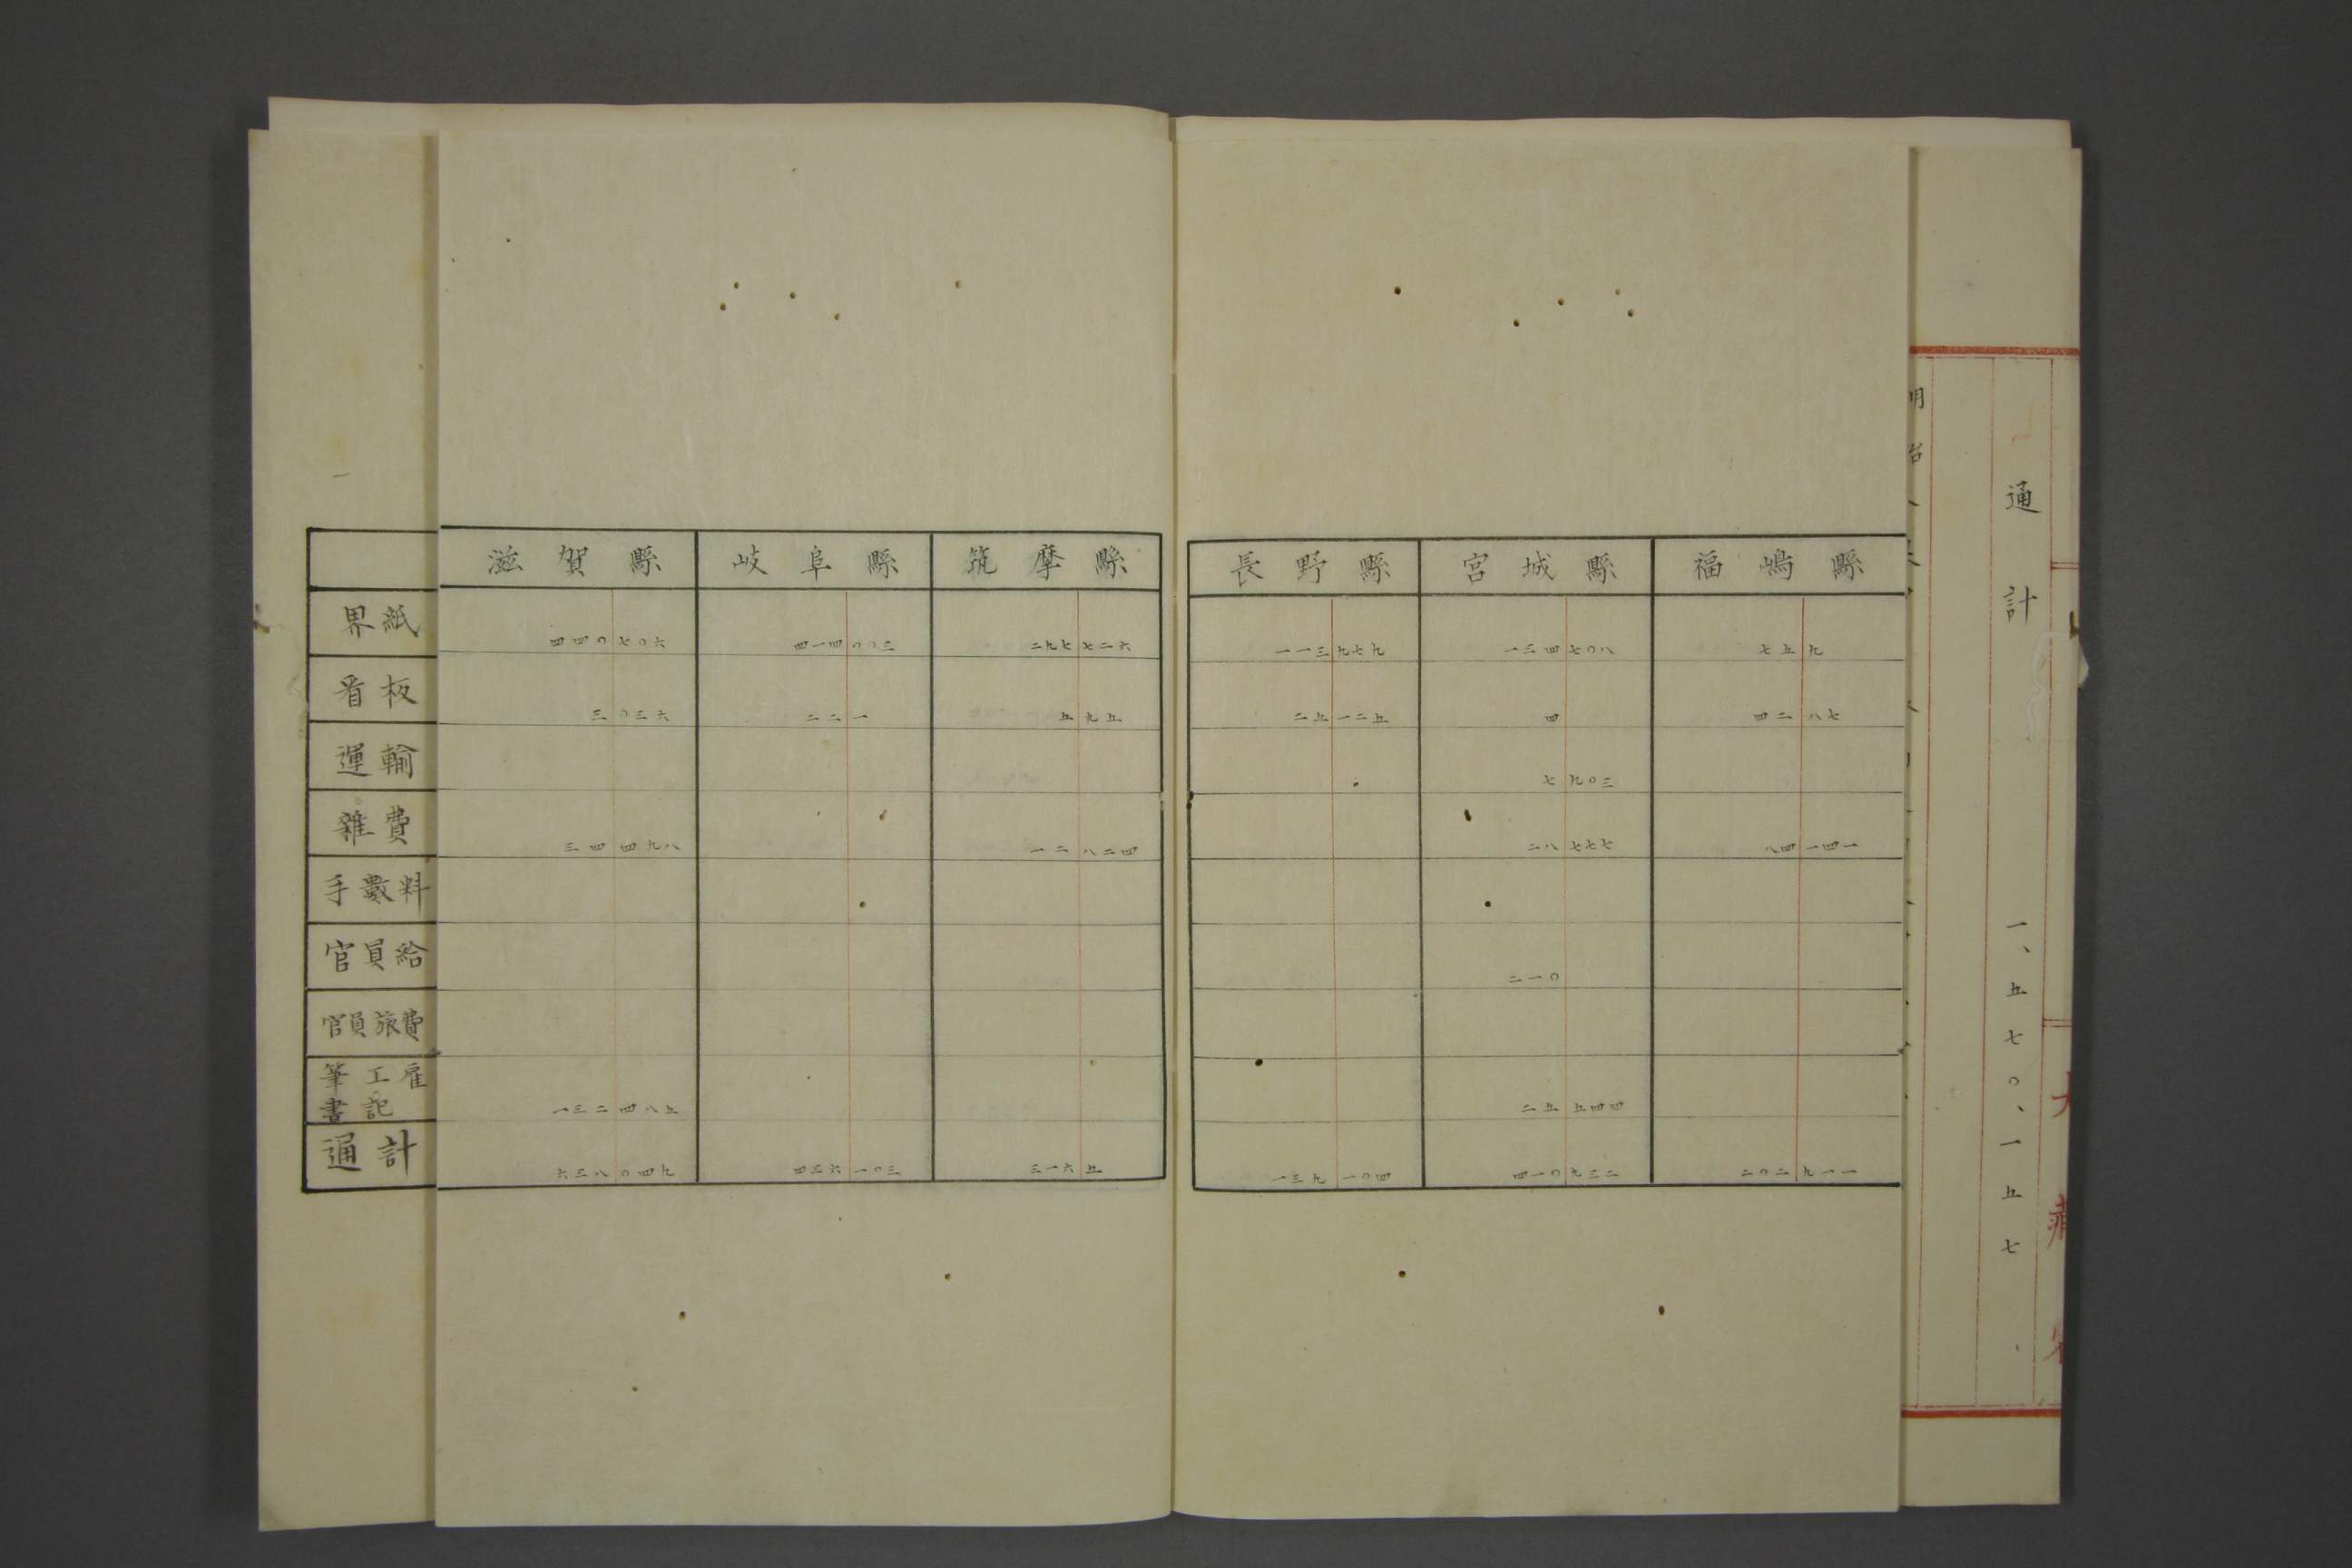 通計 一、五七〇、一五七、
滋賀縣 岐阜縣 筑摩縣 長野縣 宮城縣 福嶋縣
界紙 四四〇七〇六 四一四〇〇三 二九七七二六 一一三九七九 一三四七〇八 七五九
看板 三〇三六 二二一 五九五 二五一二五 四 四二八七
運輸 七九〇三
雜費 三四四九八 一二八二四 二八七七七 八四一四一
手數料
官員給 二一〇
官員旅費
筆工雇書記 一三二四八五 二五五四四
通計 六三八〇四九 四三六一〇三 三一六五 一三九一〇四 四一〇九三二 二〇二九一一